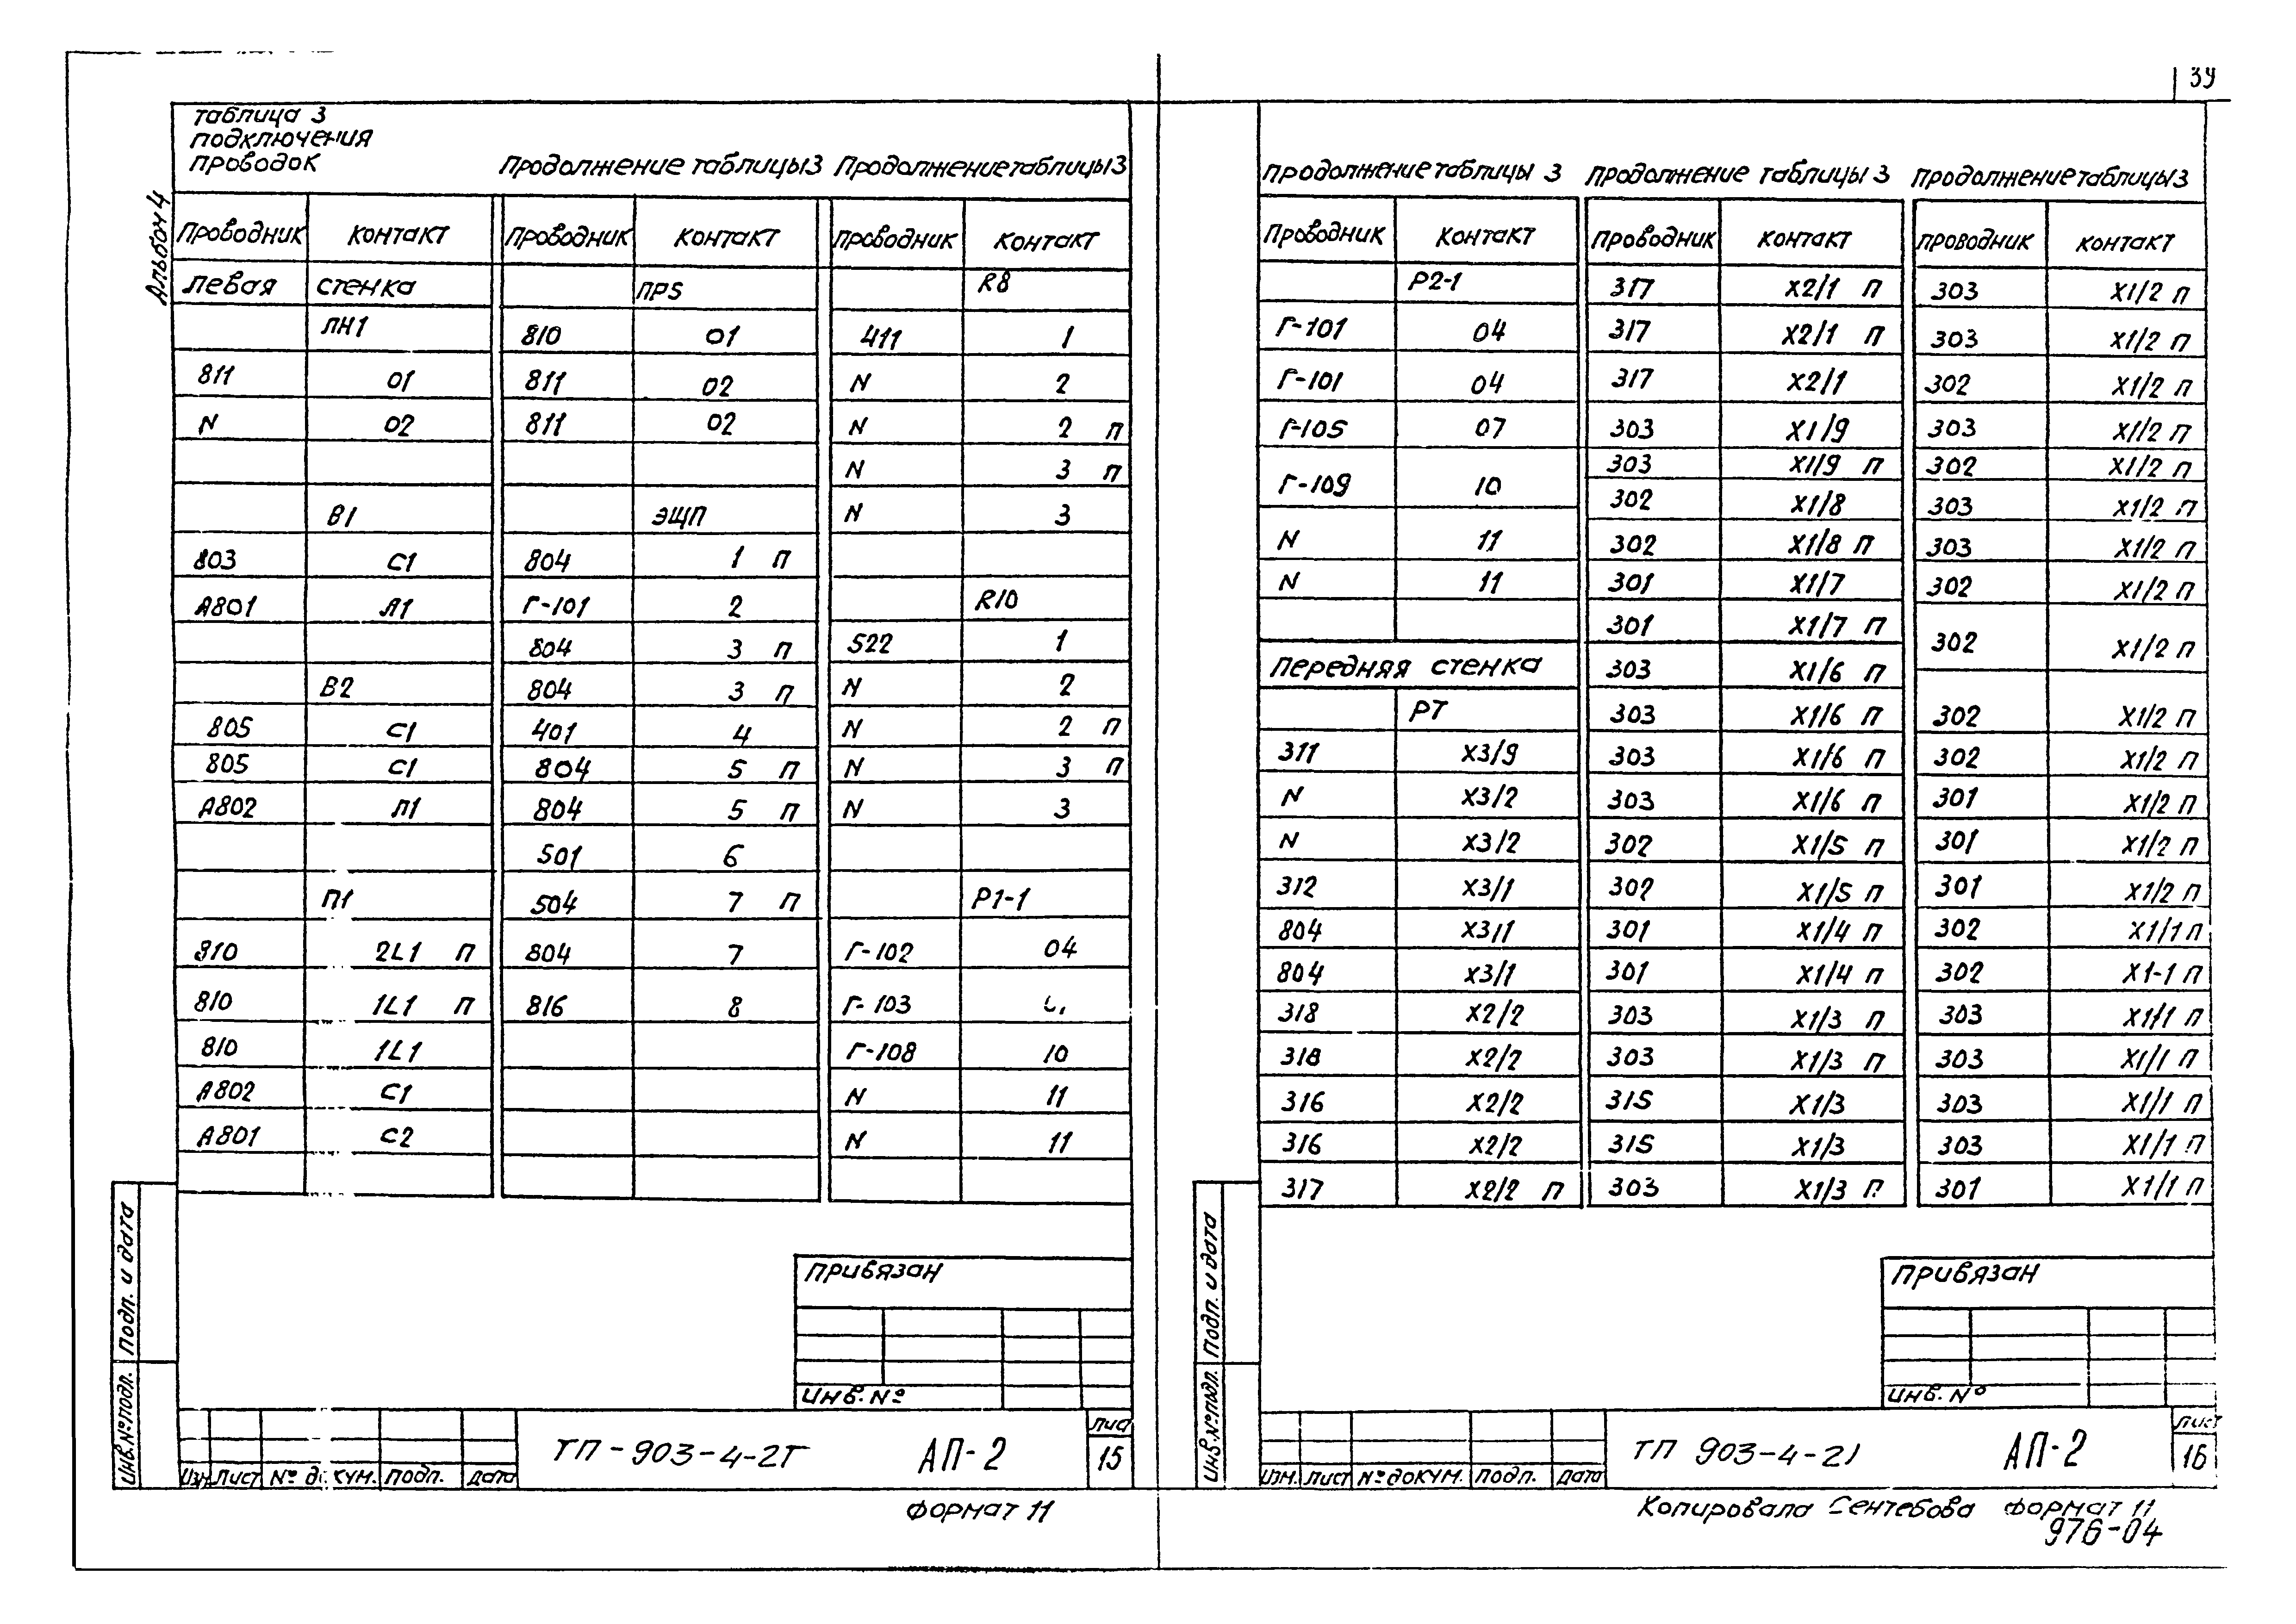 39
Альбом 4
таблица 3
подключения
проводок
Продолжение таблицы 3
Продолжение таблицы 3
Проводник контакт Проводник контакт Проводник контакт
левая стенка ПР5 R8
ЛН1 810 01 411 1
811 01 811 02 N 2
N 02 811 02 N 2 П
N 3 П
В1 ЭЩП N 3
803 С1 804 1 П
А801 Л1 Г-101 2 R10
804 3 П 522 1
В2 804 3 П N 2
805 С1 401 4 N 2 П
805 С1 804 5 П N 3 П
А802 Л1 804 5 П N 3
501 6
П1 504 7 П Р1-1
810 2L1 П 804 7 Г-102 04
810 1L1 П 816 8 Г-103
810 1L1 Г-108 10
А802 С1 N 11
А801 С2 N 11
Привязан
Инв. №
Подп. и дата
Инв.№подл.
Изм Лист № докум. Подп. Дата
ТП-903-4-2Г АП-2
Лис
15
Формат 11
Продолжение таблицы 3
Продолжение таблицы 3
Продолжение таблицы 3
Проводник контакт Проводник контакт проводник контакт
Р2-1 317 Х2/1 П 303 Х1/2 П
Г-101 04 317 Х2/1 П 303 Х1/2 П
Г-101 04 317 Х2/1 302 Х1/2 П
Г-105 07 303 Х1/9 303 Х1/2 П
303 Х1/9 П 302 Х1/2 П
Г-109 10 302 Х1/8 303 Х1/2 П
N 11 302 Х1/8 П 303 Х1/2 П
N 11 301 Х1/7 302 Х1/2 П
301 Х1/7 П 302 Х1/2 П
Передняя стенка 303 Х1/6 П
Р7 303 Х1/6 П 302 Х1/2 П
311 Х3/9 303 Х1/6 П 302 Х1/2 П
N Х3/2 303 Х1/6 П 301 Х1/2 П
N Х3/2 302 Х1/5 П 301 Х1/2 П
312 Х3/1 302 Х1/5 П 301 Х1/2 П
804 Х3/1 301 Х1/4 П 302 Х1/1 П
804 Х3/1 301 Х1/4 П 302 Х1-1 П
318 Х2/2 303 Х1/3 П 303 Х1/1 П
318 Х2/2 303 Х1/3 П 303 Х1/1 П
316 Х2/2 315 Х1/3 303 Х1/1 П
316 Х2/2 315 Х1/3 303 Х1/1 П
317 Х2/2 П 303 Х1/3 П 301 Х1/1 П
Привязан
Инв. №
Подп. и дата
Инв.№подл.
Изм. Лист № докум. Подп. Дата
ТП 903-4-21 АП-2
Лист
16
Копировала Сентебова Формат 11
976-04